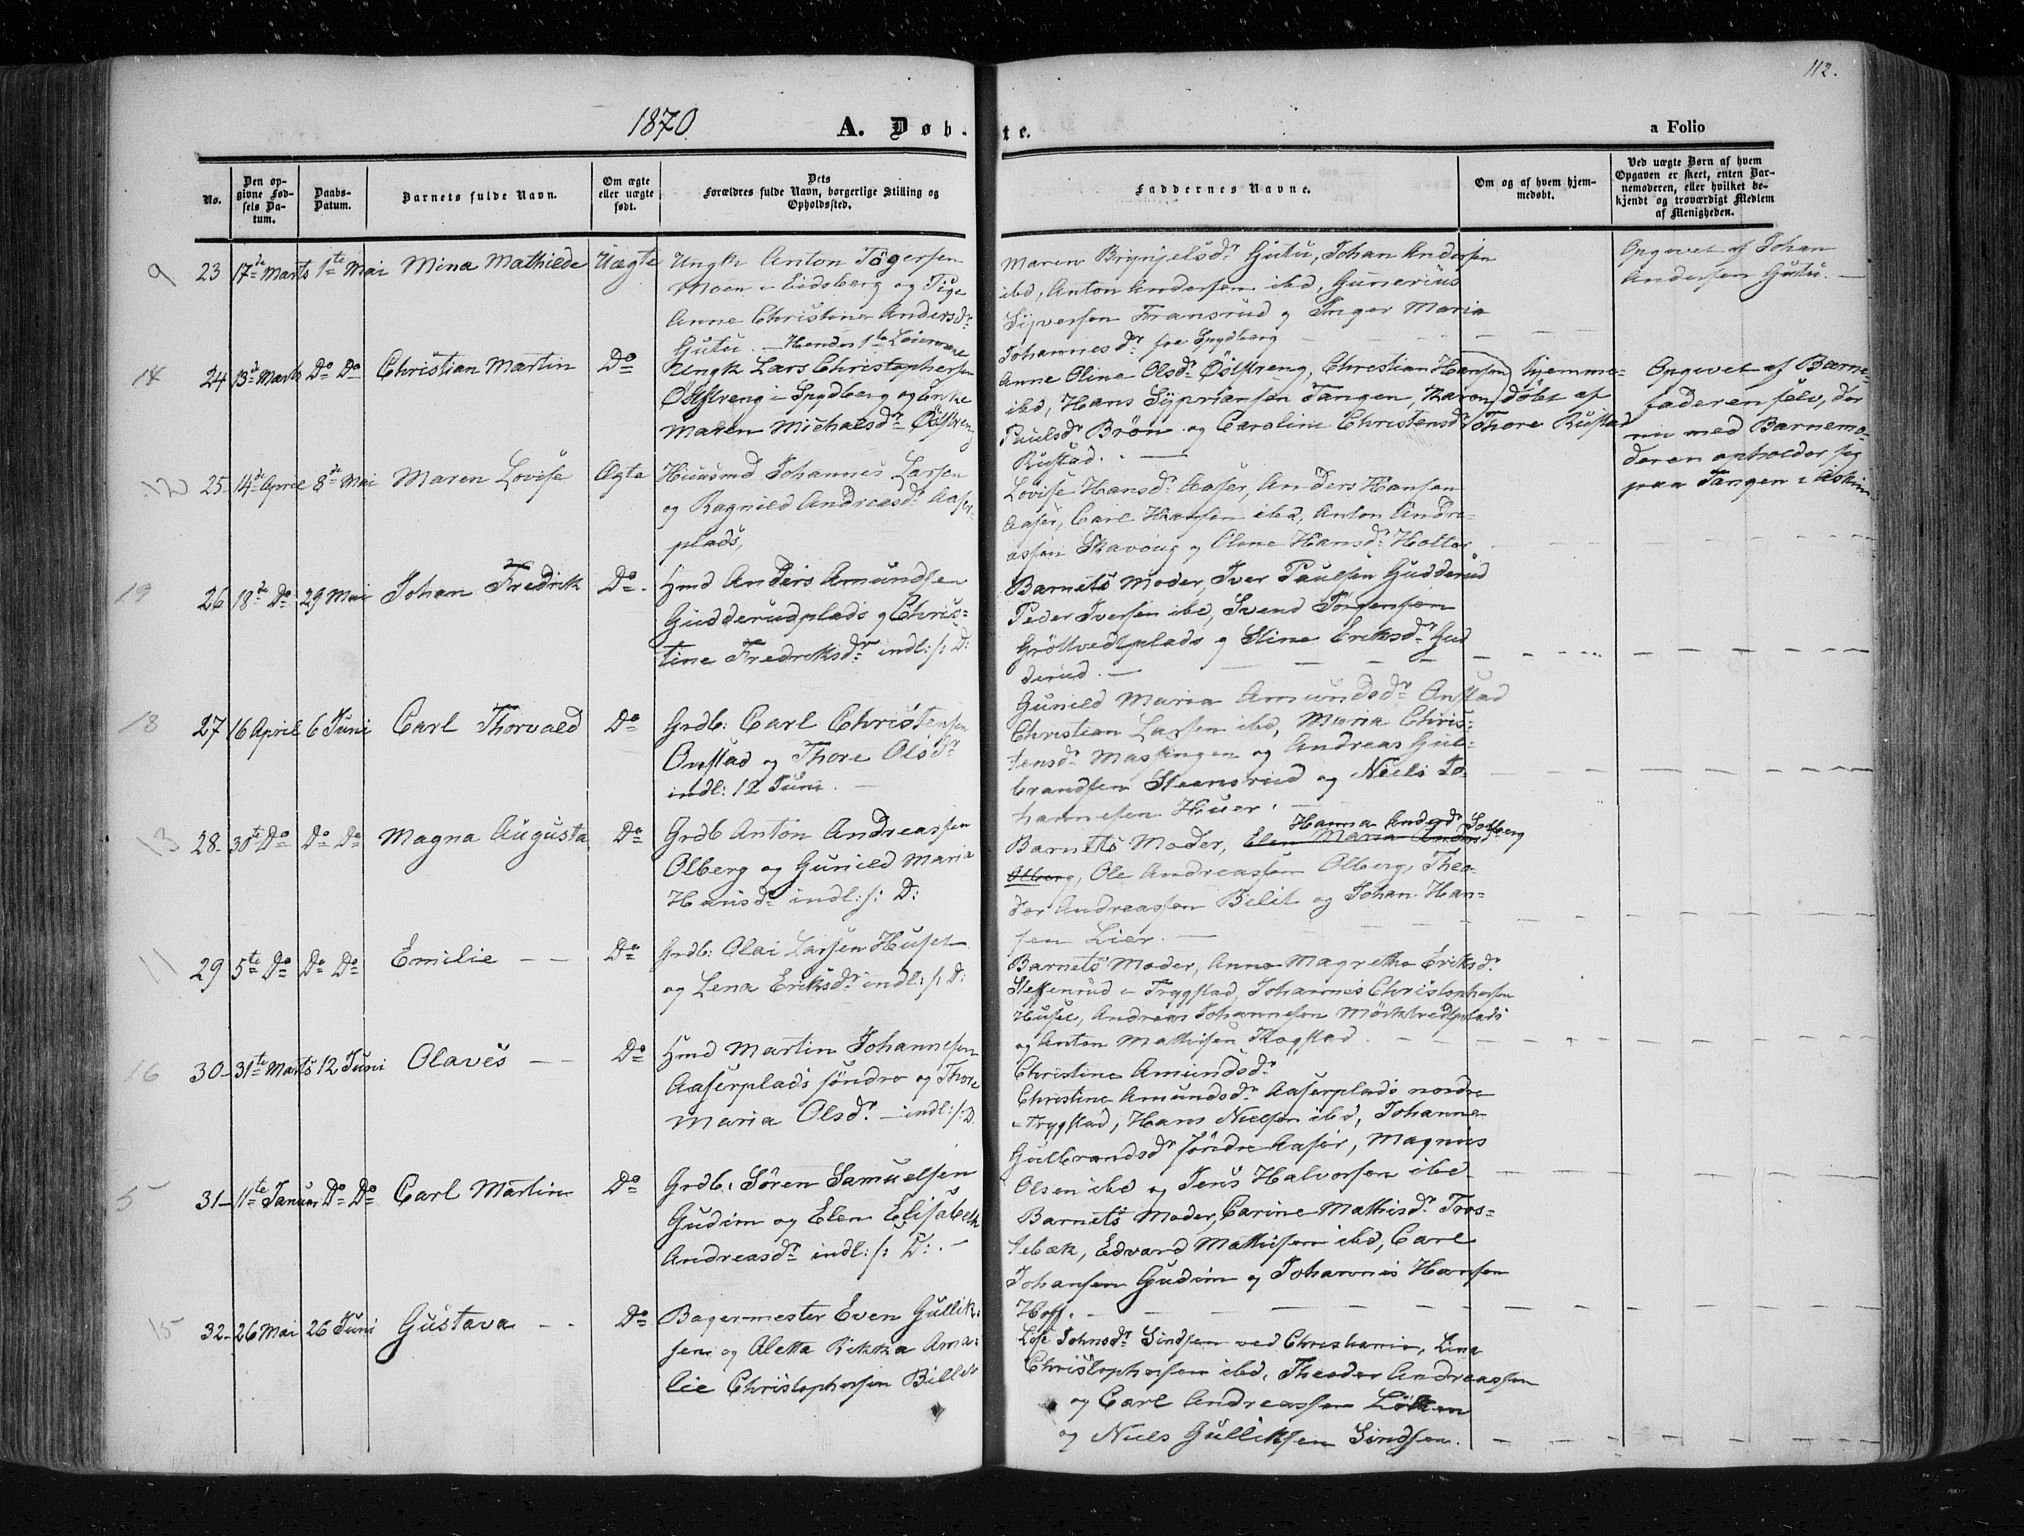 112.
1870
A. Døb-
te.
a Folio
No.
Den op-
givne Fød-
sels Da-
tum.
Daabs-
Datum.
Barnets fulde Navn.
Om ægte
eller uægte
født.
Dets
Forældres fulde Navn, borgerlige Stilling og
Opholdssted.
Faddernes Navne.
Om og af hvem hjem-
medøbt.
Ved uægte Børn af hvem
Opgaven er skeet, enten Bar-
nemoderen, eller hvilket be-
kjendt og troværdigt Medlem
af Menigheden.
9 23 17de Marts 1te Mai Mina Mathilde Uægte
Ungk Anton Tøgersen
Moen i Eidsberg og Pige
Anne Christine Andersdr
Gutu. Hendes 1te Leiermaal
Maren Brynjelsdr Gutu, Johan Andersen
ibd, Anton Andersen ibd, Gunerius
Syversen Fransrud og Inger Maria
Johannesdr fra Spydberg
Opgivet af Johan
Andersen Gutu.
14 24 13de Marts Do Do Christian Martin Do
Ungk Lars Christophersen
Ødstreng i Spydberg og Enke
Maren Michaelsdr Ødstreng
Anne Oline Olsdr Ødstreng, Christian Hansen
ibd, Hans Syprianssen Tangen, Karen
Paulsdr Brøn og Caroline Christensdr
Rustad.
hjemme-
døbt af
Thore Rustad
Opgivet af Barne-
faderen selv, der
nu med Barnemo-
deren opholder sig
paa Tangen i Askim
12 25 14de April 8de Mai Maren Lovise Ægte
Huusmd Johannes Larsen
og Ragnild Andreasdr Aaser-
plads,
Lovise Hansdr Aaser, Anders Hansen
Aaser, Carl Hansen ibd, Anton Andre-
assen Skavoug og Oline Hansdr Holter
19 26 18de Do 29 Mai Johan Fredrik Do
Hmd Anders Amundsen
Gudderudplads og Chris-
tine Fredriksdr indl: s: D:
Barnets Moder, Iver Paulsen Gudderud
Peder Iversen ibd, Svend Jørgensen
Grøttvedtplads og Stine Eriksdr Gud
derud.
18 27 16 April 6 Juni Carl Thorvald Do
Grdb: Carl Christensen
Onstad og Thore Olsdr
indl: 12 Juni.
Gunild Maria Amundsdr Onstad
Christian Larsen ibd, Maria Chris-
tensdr Massingen og Andreas Gul-
brandsen Steensrud og Niels Jo-
hannesen Huer.
13 28 30te Do Do Do Magna Augusta Do
Grdb Anton Andreassen
Olberg og Gunild Maria
Hansdr indl: s: D:
Hanna Andrdr Solberg
Barnets Moder, Elen Maria Andrdr
Olberg, Ole Andreassen Olberg, Theo-
dor Andreassen Bilit og Johan Han-
sen Lier.
11 29 5te Do Do Do Emilie Do
Grdb: Olai Larsen Huset
og Lena Eriksdr indl: s: D:
Barnets Moder, Anna Magrethe Eriksdr
Steffenrud i Trygstad, Johannes Christophersen
Huset, Andreas Johannesen Mørkvedtplads
og Anton Mathisen Skogstad.
16 30 31te Marts 12 Juni Olaves Do
Hmd Martin Johannesen
Aaserplads søndre og Thore
Maria Olsdr. indl: s: D.
Christine Amundsdr
Christine Amundsdr Aaserplads nordre
i Trygstad, Hans Nielsen ibd, Johanne
Gulbrandsdr søndre Aaser, Magnus
Olsen ibd og Jens Halvorsen ibd
5 31 11te Januar Do Do Carl Martin Do
Grdb: Søren Samuelsen
Gudim og Elen Elisabeth
Andreasdr indl: s: D:
Barnets Moder, Carine Mathisdr Tros-
tebæk, Edvard Mathisen ibd, Carl
Johansen Gudim og Johannes Hansen
Hoff.
15 32 26 Mai 26 Juni Gustava Do
Bagermester Even Gullik-
sen og Aletta Rikka Ama-
lie Christophersen
Lise Johnsdr Sindsen ved Christiania, Lina
Christophersen ibd, Theodor Andreassen
og Carl Andreassen Løken
og Niels Gulliksen Sindsen.